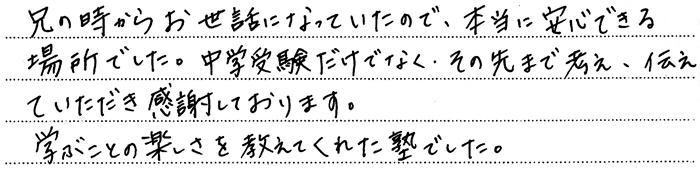 兄の時からお世話になっていたので、本当に安心できる
場所でした。中学受験だけでなく、その先まで考え、伝え
ていただき感謝しております。
学ぶことの楽しさを教えてくれた塾でした。